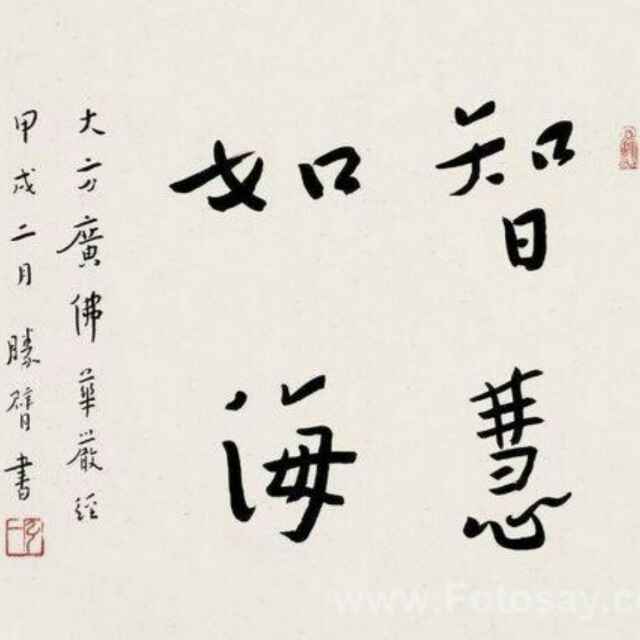 智慧
如海
大方廣佛華嚴經
甲戌二月勝臂書
www.Fotosay.c